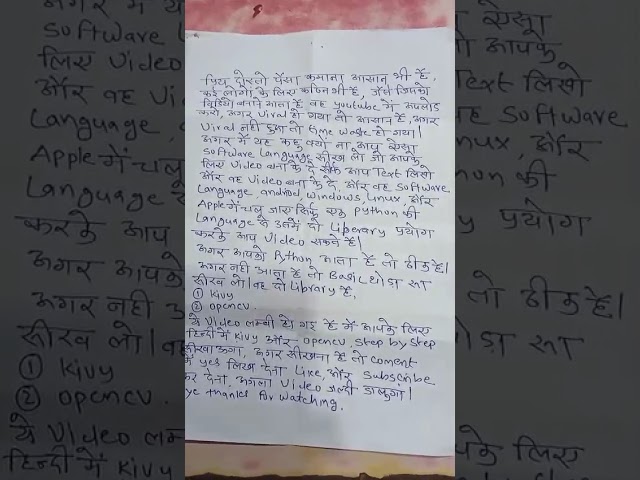 प्रिय दोस्तो पैसा कमाना आसान भी है,
कई लोगो के लिए कठिन भी है, जैसे जिसको
विडियो बनाने आता है वह youtube में अपलोड
करो, अगर Viral हो गया तो आसान है, अगर
Viral नही हुआ तो time waste हो गया।
अगर में यह कहू क्यो ना आप ऐसा
Software Language सीख लो जो आपके
लिए Video बना के दे सीर्फ आप Text लिखो
और वह Video बना के दे, और वह Software
Language android, windows, Linux, और
Apple में चलू जाए सिर्फ एक Python की
Language के उसमे दो Liberary प्रयोग
करके आप Video सकते है।
अगर आपको Python आता है तो ठीक है।
अगर नही आता है तो Basic थोडा सा
सीख लो। वह दो Library है,
① Kivy
② opencv.
ये Video लम्बी हो गइ है में आपके लिए
हिन्दी में Kivy और opencv, step by step
सीखाऊगा, अगर सीखना है तो coment
में yes लिख देना Like, और Subscribe
कर देना, अगला Video जल्दी डालुगा।
bye thanks for watching.